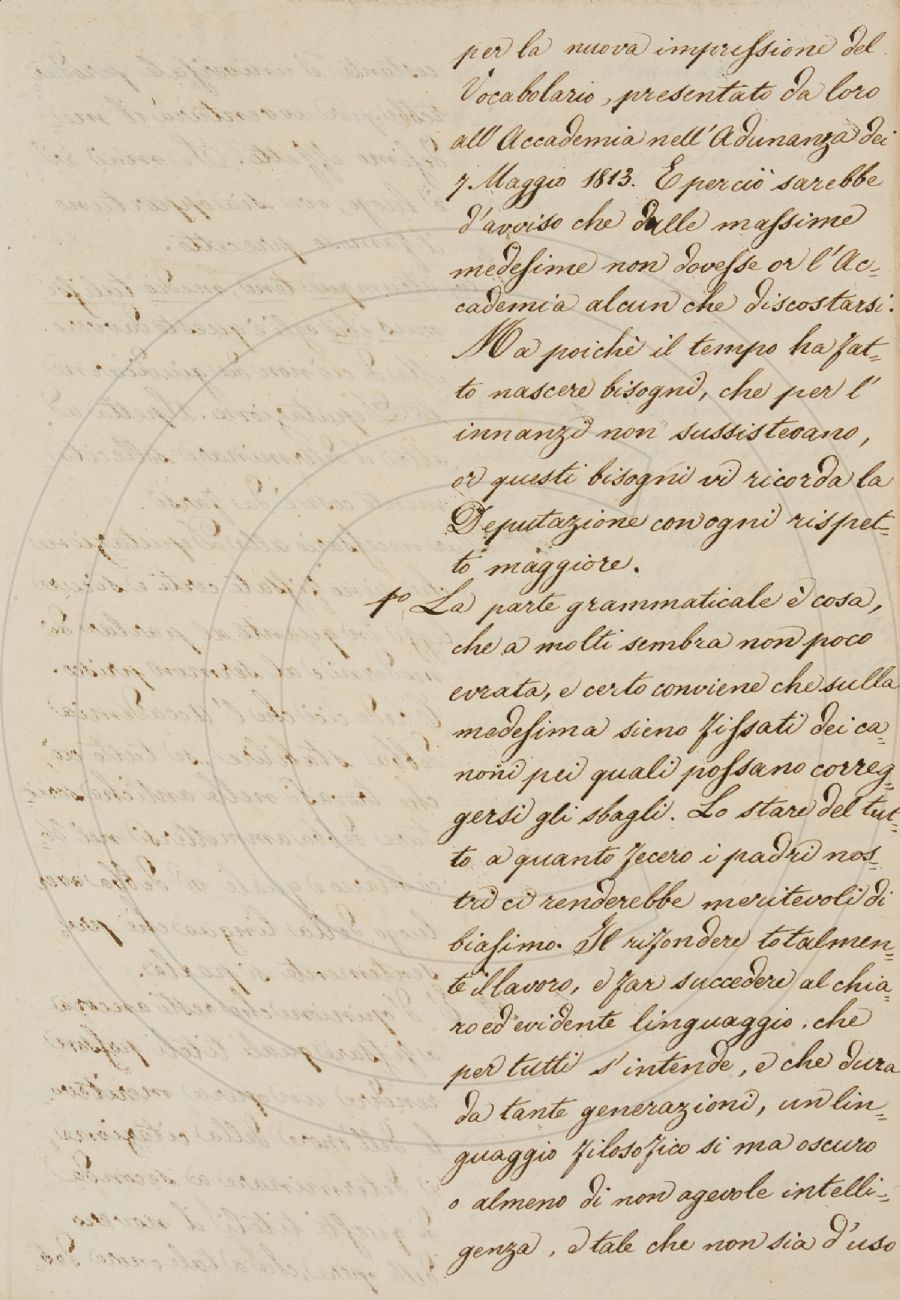 per la nuova impressione del
Vocabolario, presentato da loro
all'Accademia nell'Adunanza dei
7. Maggio 1813. E perciò sarebbe
d'avviso che dalle massime
medesime non dovesse or l'Ac=
cademia alcun che discostarsi.
Ma poichè il tempo ha fat=
to nascere bisogni, che per l'
innanzi non sussistevano,
or questi bisogni vi ricorda la
Deputazione con ogni rispet=
to maggiore.
1º La parte grammaticale è cosa,
che a molti sembra non poco
errata, e certo conviene che sulla
medesima sieno fissati dei ca=
noni pei quali possano correg=
gersi gli sbagli. Lo stare del tut=
to a quanto fecero i padri nos=
tri ci renderebbe meritevoli di
biasimo. Il rifondere totalmen=
te il lavoro, e far succedere al chia=
ro ed evidente linguaggio, che
per tutti s'intende, e che dura
da tante generazioni, un lin=
guaggio filosofico si ma oscuro
o almeno di non agevole intelli=
genza, e tale che non sia d'uso